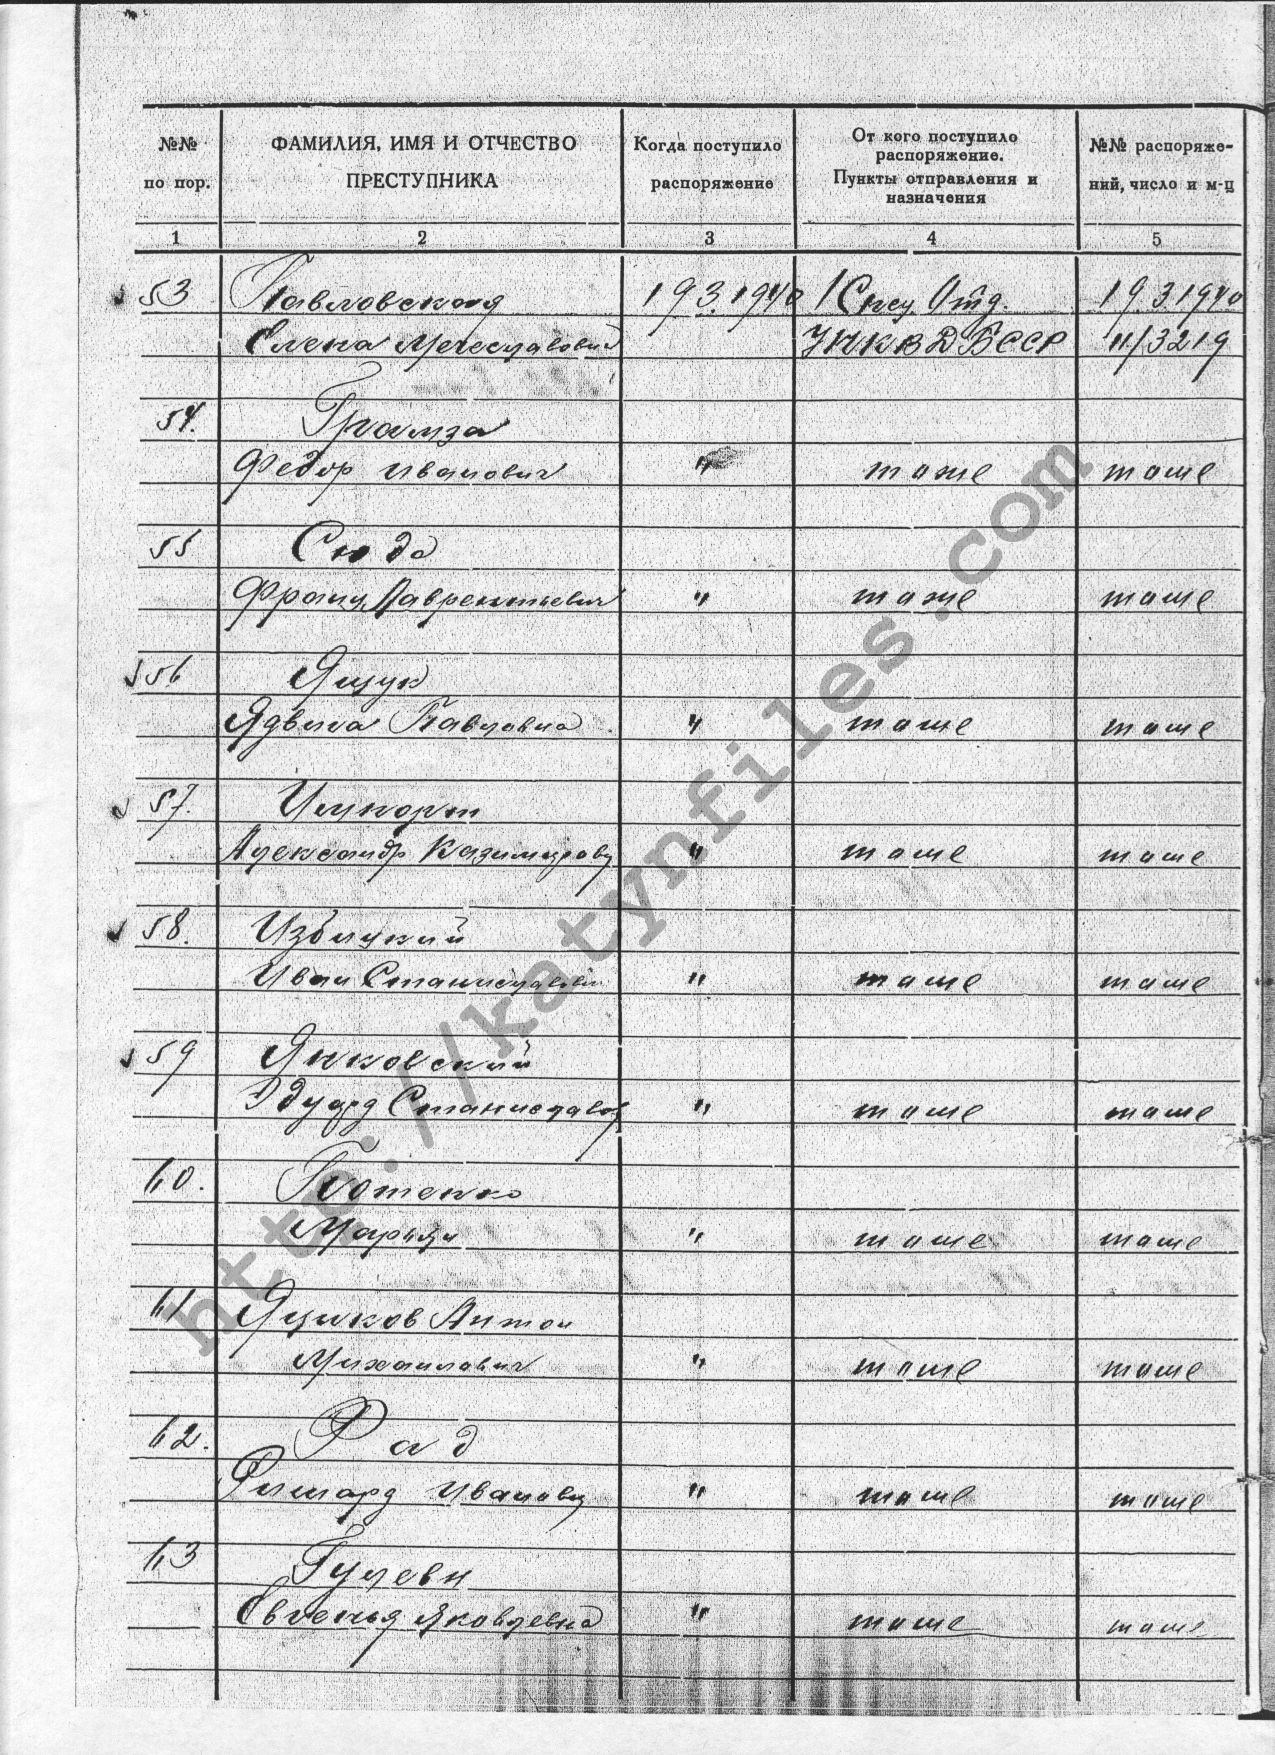 №№ по пор.
ФАМИЛИЯ, ИМЯ И ОТЧЕСТВО ПРЕСТУПНИКА
Когда поступило распоряжение
От кого поступило распоряжение. Пункты отправления и назначения
№№ распоряжений, число и м-ц
1 2 3 4 5
53 Павловская 19.3.1940 1 Спец. Отд. 19.3.1940
Елена Мечеславовн УНКВД БССР 11/3219
54. Грамза
Федор Иванович " тоже тоже
55 Сюда
Франц Лаврентьевич " тоже тоже
56 Ящук
Ядвига Павловна " тоже тоже
57.
Александр Казимиров " тоже тоже
58. Избицкий
Иван Станиславович " тоже тоже
59 Янковский
Эдуард Станиславов " тоже тоже
60. Потенко
Марьян " тоже тоже
61 Яциков Антон
Михайлович " тоже тоже
62. Рад
Ришард Иванов " тоже тоже
63
Евгенья Яковлевна " тоже тоже
http://katynfiles.com